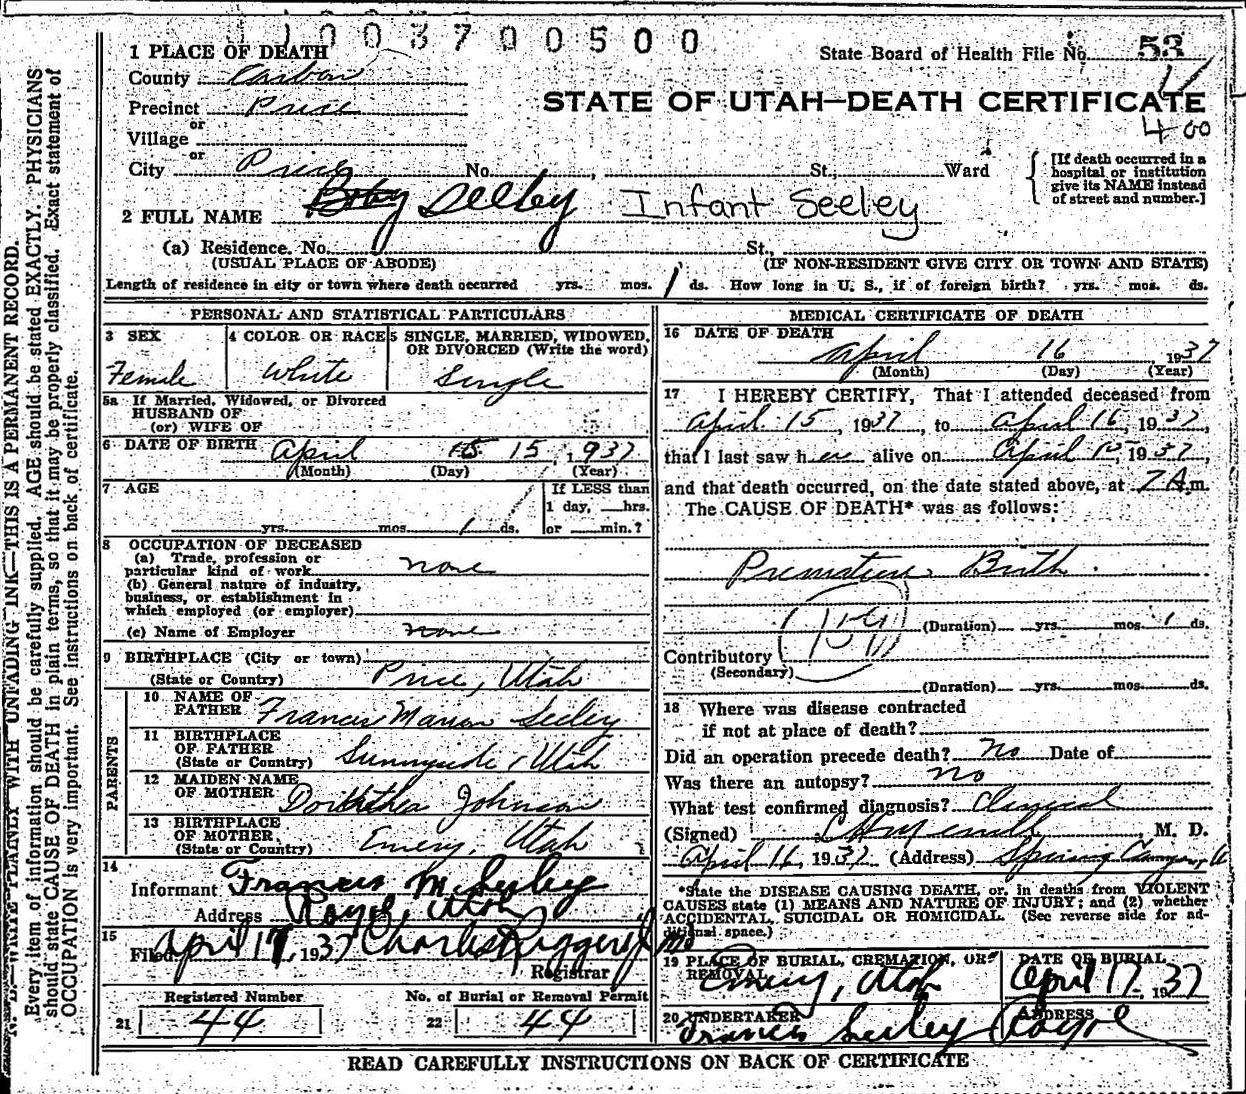 1 0 0 3 7 0 0 5 0 0
1 PLACE OF DEATH
State Board of Health File No. 53
County Carbon
Precinct Price
STATE OF UTAH—DEATH CERTIFICATE
or
Village
4 00
or
City Price No. , St., Ward
[If death occurred in a hospital or institution give its NAME instead of street and number.]
2 FULL NAME Baby Seeley Infant Seeley
(a) Residence. No. St.,
(USUAL PLACE OF ABODE) (IF NON-RESIDENT GIVE CITY OR TOWN AND STATE)
Length of residence in city or town where death occurred yrs. mos. 1 ds. How long in U. S., if of foreign birth? yrs. mos. ds.
PERSONAL AND STATISTICAL PARTICULARS
3 SEX
Female
4 COLOR OR RACE
White
5 SINGLE, MARRIED, WIDOWED, OR DIVORCED (Write the word)
Single
5a If Married, Widowed, or Divorced
HUSBAND OF
(or) WIFE OF
6 DATE OF BIRTH April 15 15, 1937
(Month) (Day) (Year)
7 AGE
yrs. mos. 1 ds.
If LESS than
1 day, hrs.
or min.?
8 OCCUPATION OF DECEASED
(a) Trade, profession or
particular kind of work none
(b) General nature of industry,
business, or establishment in
which employed (or employer)
(c) Name of Employer none
9 BIRTHPLACE (City or town)
(State or Country) Price, Utah
PARENTS
10 NAME OF
FATHER Francis Marion Seeley
11 BIRTHPLACE
OF FATHER
(State or Country) Sunnyside, Utah
12 MAIDEN NAME
OF MOTHER Dorthea Johnson
13 BIRTHPLACE
OF MOTHER
(State or Country) Emery, Utah
14
Informant Francis M. Seeley
Address Royal, Utah
15
Filed April 17, 1937 Charles Ruggeri Jr MD
Registrar
Registered Number
21 44
No. of Burial or Removal Permit
22 44
MEDICAL CERTIFICATE OF DEATH
16 DATE OF DEATH
April 16, 1937
(Month) (Day) (Year)
17 I HEREBY CERTIFY, That I attended deceased from
April 15, 1937, to April 16, 1937,
that I last saw her alive on April 15, 1937,
and that death occurred, on the date stated above, at 7 A.m.
The CAUSE OF DEATH* was as follows:
Premature Birth.
159
(Duration) yrs. mos. 1 ds.
Contributory
(Secondary)
(Duration) yrs. mos. ds.
18 Where was disease contracted
if not at place of death?
Did an operation precede death? No Date of
Was there an autopsy? no
What test confirmed diagnosis? Clinical
(Signed) , M. D.
April 16, 1937 (Address) Spring Canyon, U
*State the DISEASE CAUSING DEATH, or, in deaths from VIOLENT
CAUSES state (1) MEANS AND NATURE OF INJURY; and (2) whether
ACCIDENTAL, SUICIDAL OR HOMICIDAL. (See reverse side for ad-
ditional space.)
19 PLACE OF BURIAL, CREMATION, OR
REMOVAL
Emery, Utah
DATE OF BURIAL
April 17, 1937
20 UNDERTAKER
Francis Seeley
ADDRESS
Royal
READ CAREFULLY INSTRUCTIONS ON BACK OF CERTIFICATE
N. B.—WRITE PLAINLY WITH UNFADING INK—THIS IS A PERMANENT RECORD.
Every item of information should be carefully supplied. AGE should be stated EXACTLY. PHYSICIANS
should state CAUSE OF DEATH in plain terms, so that it may be properly classified. Exact statement of
OCCUPATION is very important. See instructions on back of certificate.